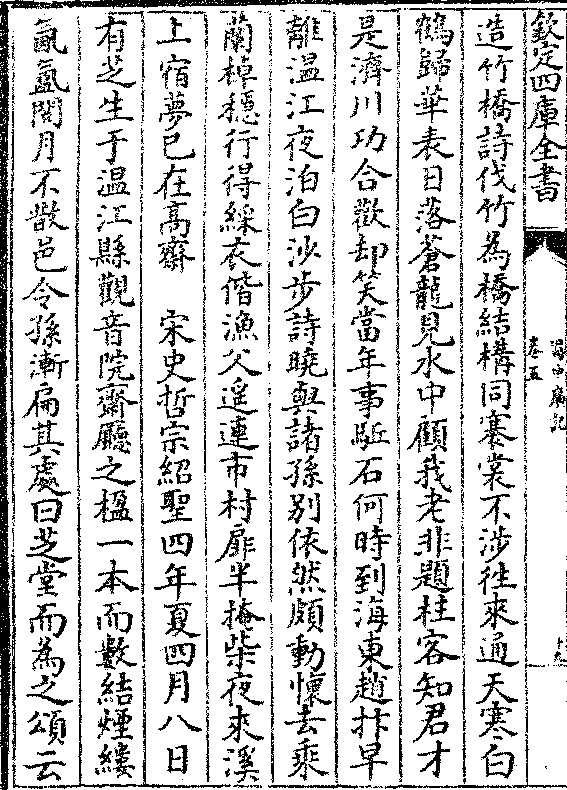 欽定四庫全書
蜀中廣記
卷五
造竹橋詩伐竹為橋結構同褰裳不涉徃來通天寒白
鶴歸華表日落蒼龍見水中顧我老非題柱客知君才
是濟川功合歡却笑當年事驅石何時到海東趙抃早
離温江夜泊白沙步詩曉與諸孫别依然頗動懷去乗
蘭棹穏行得綵衣偕漁父遥連市村扉半掩柴夜來溪
上宿夢已在髙齋　宋史哲宗紹聖四年夏四月八日
有芝生于温江縣觀音院齋廳之楹一本而數結煙縷
氤氲閲月不散邑令孫漸扁其處曰芝堂而為之頌云